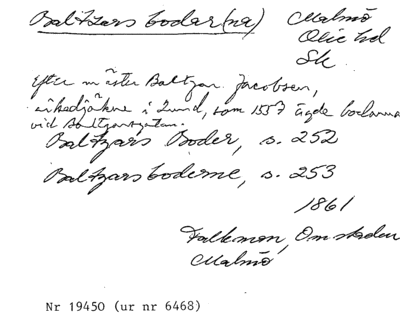 Baltzars bodar(na)
Malmö
Oxie hd
Sk.
Efter mäster Baltzar Jacobsen,
ärkedjäkne i Lund, som 1557 ägde bodarna
vid Baltzarsgatan.
Baltzars Boder, s. 252
Baltzarsboderne, s. 253
1861
Falkman, Om staden
Malmö
Nr 19450 (ur nr 6468)